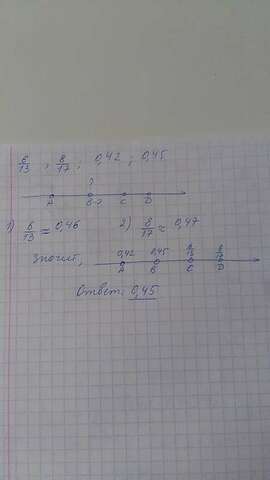 6/13 ; 8/17 ; 0,42 ; 0,45
?
A B-? C D
1) 6/13 ≈ 0,46 2) 8/17 ≈ 0,47
значит,
0,42 0,45 6/13 8/17
A B C D
Ответ: 0,45